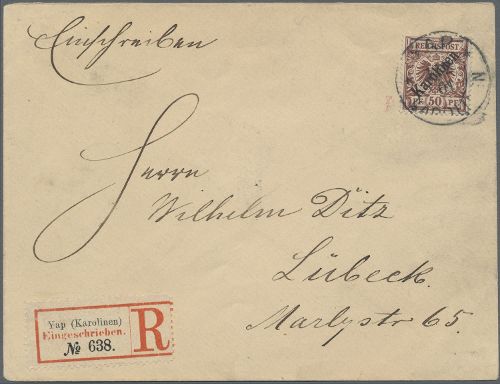 Einschreiben
REICHSPOST
Karolinen
PF 50 PF
Herrn
Wilhelm Ditz
Lübeck.
Marlystr 65.
Yap (Karolinen)
Eingeschrieben.
№ 638.
R